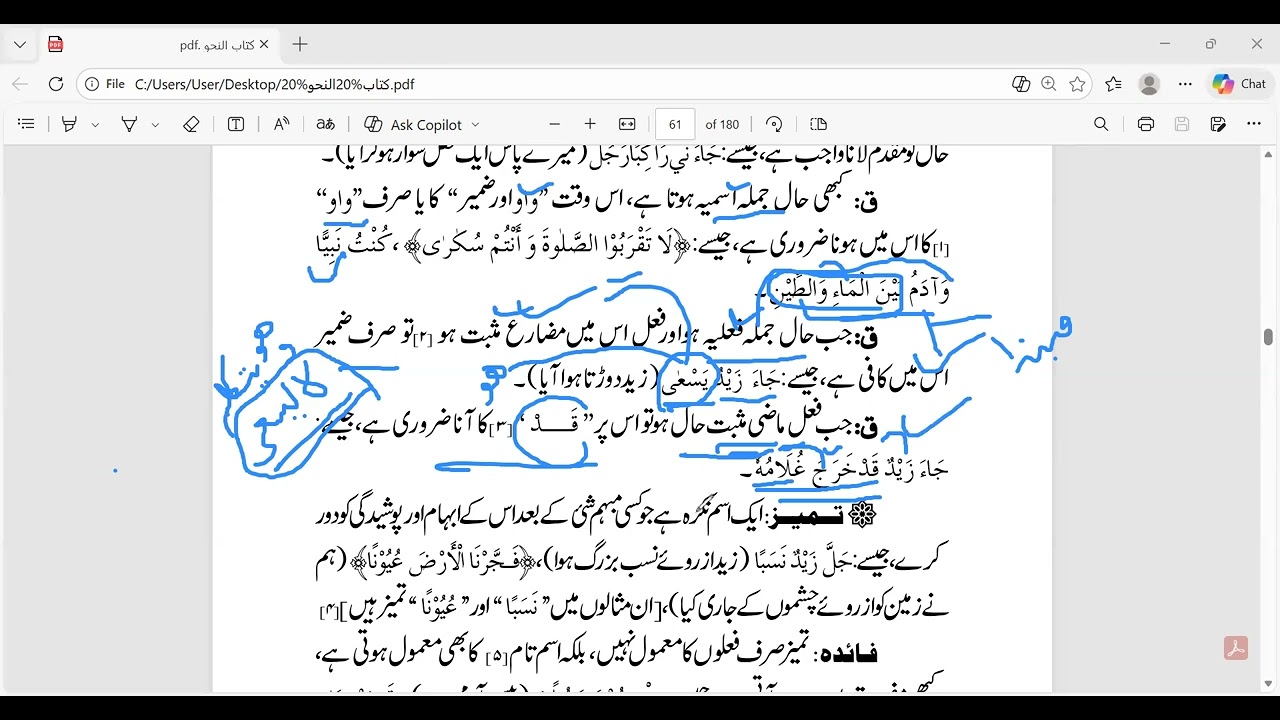 کتاب النحو .pdf
File C:/Users/User/Desktop/20%كتاب%20النحو.pdf
Chat
Ask Copilot
61 of 180
حال کو مقدم لانا واجب ہے، جیسے: جَاءَنِي رَاكِبًا رَجُلٌ (میرے پاس ایک شخص سوار ہوکر آیا)۔
ق: کبھی حال جملہ اسمیہ ہوتا ہے، اس وقت ”واو اور ضمیر“ کا یا صرف ”واو“
[۱] کا اس میں ہونا ضروری ہے، جیسے: ﴿لَا تَقْرَبُوْا الصَّلٰوةَ وَ أَنْتُمْ سُكٰرٰى﴾، كُنْتُ نَبِيًّا
وَآدَمُ بَيْنَ الْمَاءِ وَالطِّيْنِ۔
ق: جب حال جملہ فعلیہ ہو اور فعل اس میں مضارع مثبت ہو [۲] تو صرف ضمیر
اس میں کافی ہے، جیسے: جَاءَ زَيْدٌ يَسْعٰى (زید دوڑتا ہوا آیا)۔
ق: جب فعل ماضی مثبت حال ہو تو اس پر ”قَــدْ“ [۳] کا آنا ضروری ہے، جیسے:
جَاءَ زَيْدٌ قَدْ خَرَجَ غُلَامُهٗ۔
تــمیــز: ایک اسم نکرہ ہے جو کسی مبہم شئی کے بعد اس کے ابہام اور پوشیدگی کو دور
کرے، جیسے: جَلَّ زَيْدٌ نَسَبًا (زید از روئے نسب بزرگ ہوا)، ﴿فَجَّرْنَا الْأَرْضَ عُيُوْنًا﴾ (ہم
نے زمین کو از روئے چشموں کے جاری کیا)، [ان مثالوں میں ”نَسَبًا“ اور ”عُيُوْنًا“ تمیز ہیں] [۴]
فــائدہ: تمیز صرف فعلوں کا معمول نہیں، بلکہ اسم تام [۵] کا بھی معمول ہوتی ہے،